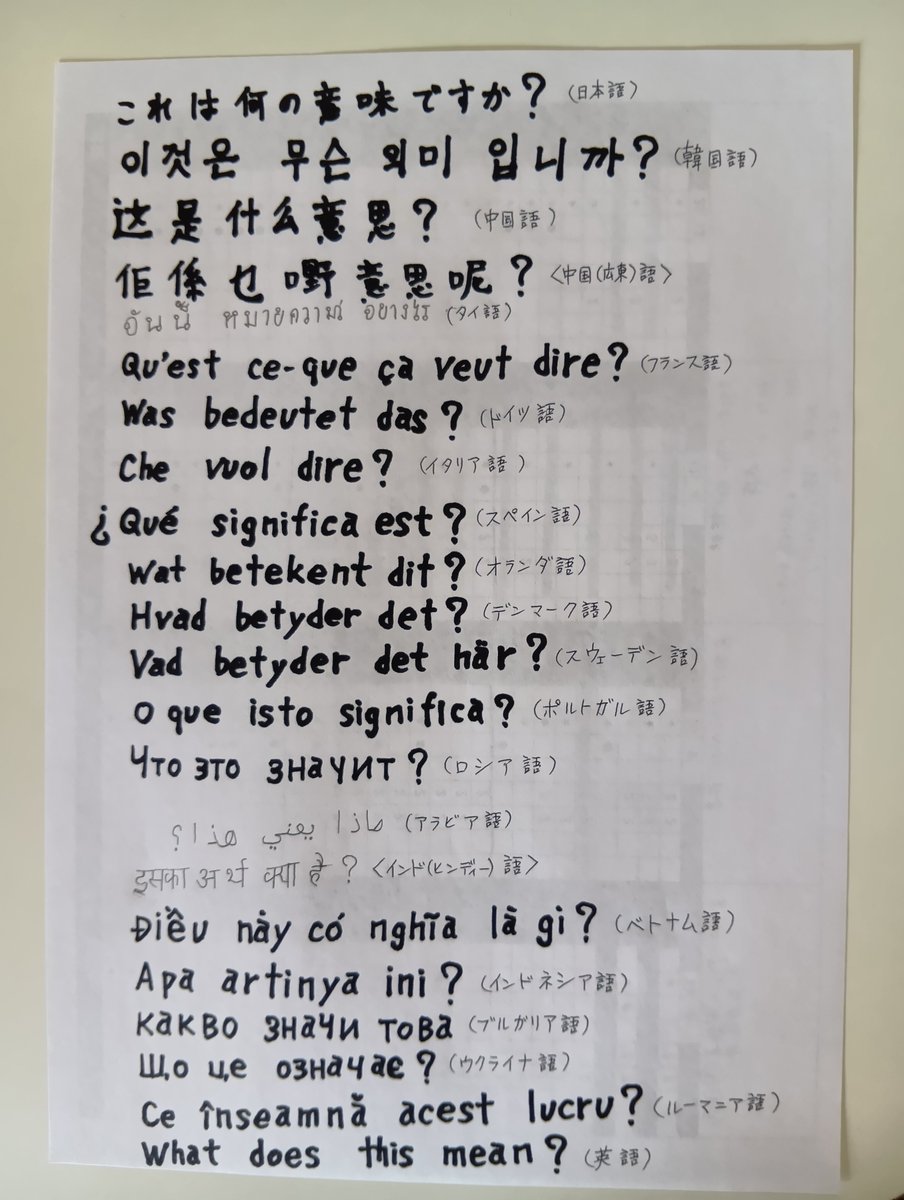 これは何の意味ですか？（日本語）
이것은 무슨 의미 입니까？（韓国語）
这是什么意思？（中国語）
佢係乜嘢意思呢？〈中国(広東)語〉
อันนี้ หมายความ อย่างไร（タイ語）
Qu'est ce-que ça veut dire?（フランス語）
Was bedeutet das?（ドイツ語）
Che vuol dire?（イタリア語）
¿Qué significa est?（スペイン語）
Wat betekent dit?（オランダ語）
Hvad betyder det?（デンマーク語）
Vad betyder det här?（スウェーデン語）
O que isto significa?（ポルトガル語）
Что это значит?（ロシア語）
ماذا يعني هذا؟（アラビア語）
इसका अर्थ क्या है?〈インド(ヒンディー)語〉
Điều này có nghĩa là gi?（ベトナム語）
Apa artinya ini?（インドネシア語）
какво значи това（ブルガリア語）
Що це означає?（ウクライナ語）
Ce înseamnă acest lucru?（ルーマニア語）
What does this mean?（英語）